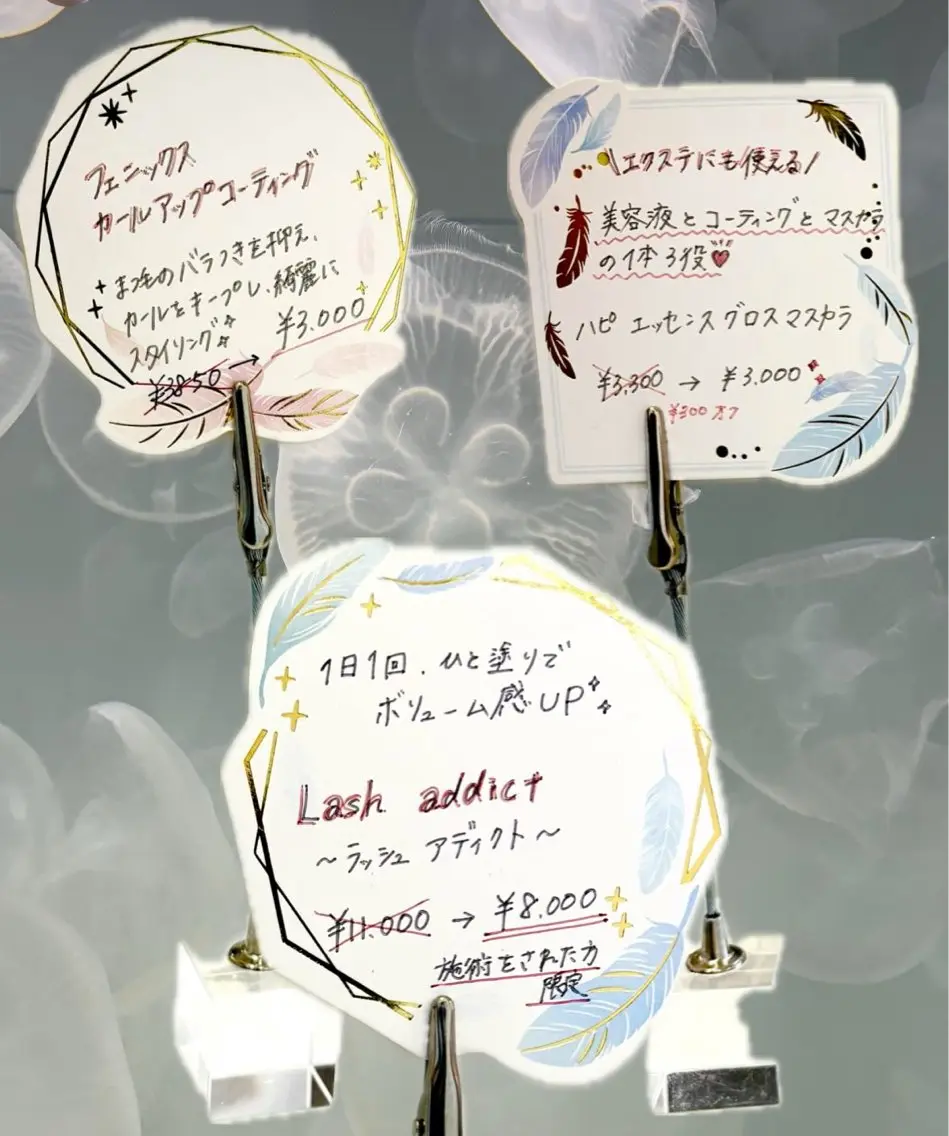 フェニックス
カールアップコーティング
まつ毛のバラつきを抑え、
カールをキープし、綺麗に
スタイリング
¥3850 → ¥3.000
\エクステにも使える/
美容液とコーティングとマスカラ
の1本3役
ハピ エッセンスグロスマスカラ
¥3.300 → ¥3.000
¥300オフ
1日1回、ひと塗りで
ボリューム感UP
Lash addict
~ラッシュ アディクト~
¥11.000 → ¥8.000
施術をされた方
限定